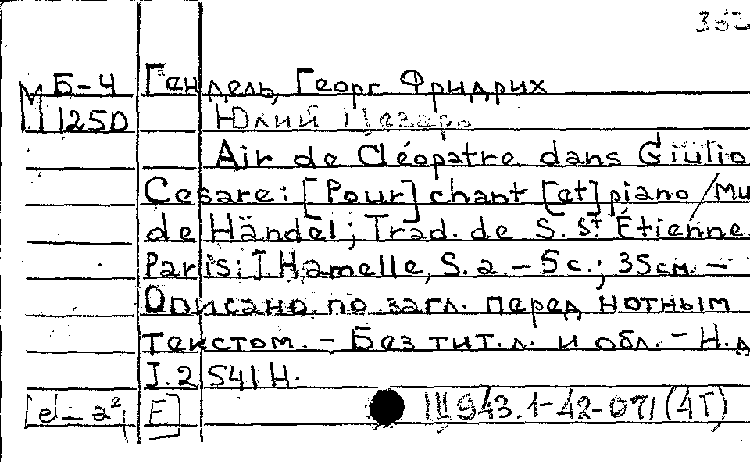 353
Б-4 Гендель, Георг Фридрих
М 1250 Юлий Цезарь
Air de Cléopatre dans Giulio
Cesare: [Pour] chant [et] piano / Mu
de Händel; Trad. de S. St Étienne.
Paris: J. Hamelle, S. a. - 5 с.; 35 см. -
Описано по загл. перед нотным
текстом. - Без тит. л. и обл. - Н. д
J. 2541 H.
[e] - a² [F] Ш 943.1-42-071 (4Т)